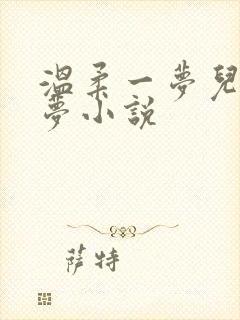 溫柔一夢兒
夢小說
薩特